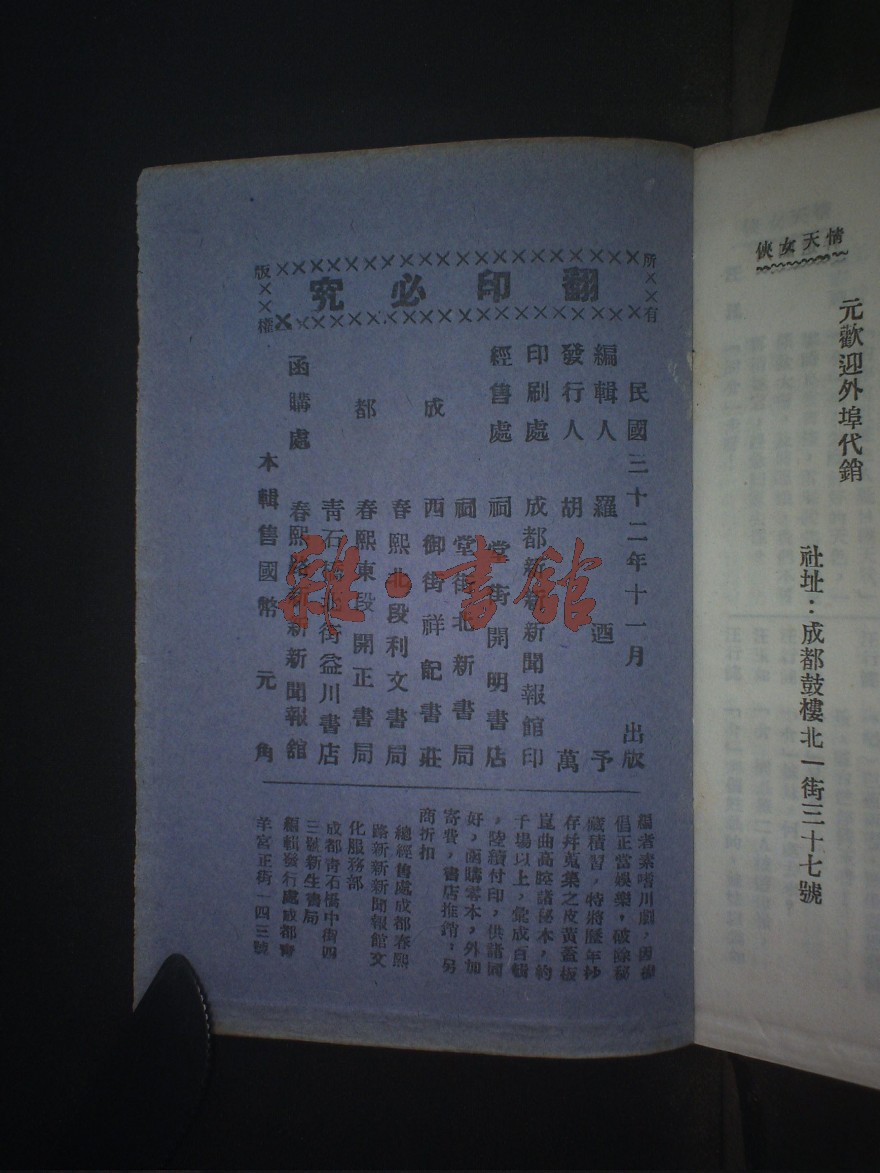 情天女俠
元歡迎外埠代銷
社址：成都鼓樓北一街三十七號
版權所有
翻印必究
民國三十二年十一月出版
編輯人 羅迺予
發行人 胡萬
印刷處 成都新新新聞報館印
經售處 祠堂街開明書店
祠堂街北新書局
成 西御街祥記書莊
春熙北段利文書局
都 春熙東段開正書局
青石橋街益川書店
函購處 春熙路新新新聞報館
本輯售國幣 元 角
編者素嗜川劇，
倡正當娛樂，破除秘
藏積習，特將歷年抄
存并蒐集之皮黃蓋板
崑曲高腔諸秘本，約
千場以上，彙成百輯
，陸續付印，供諸同
好，函購零本，外加
寄費，書店推銷，另
商折扣
總經售處成都春熙
路新新新聞報館文
化服務部
成都青石橋中街四
三號新生書局
編輯發行處成都
羊宮正街一四三號
雜·書館